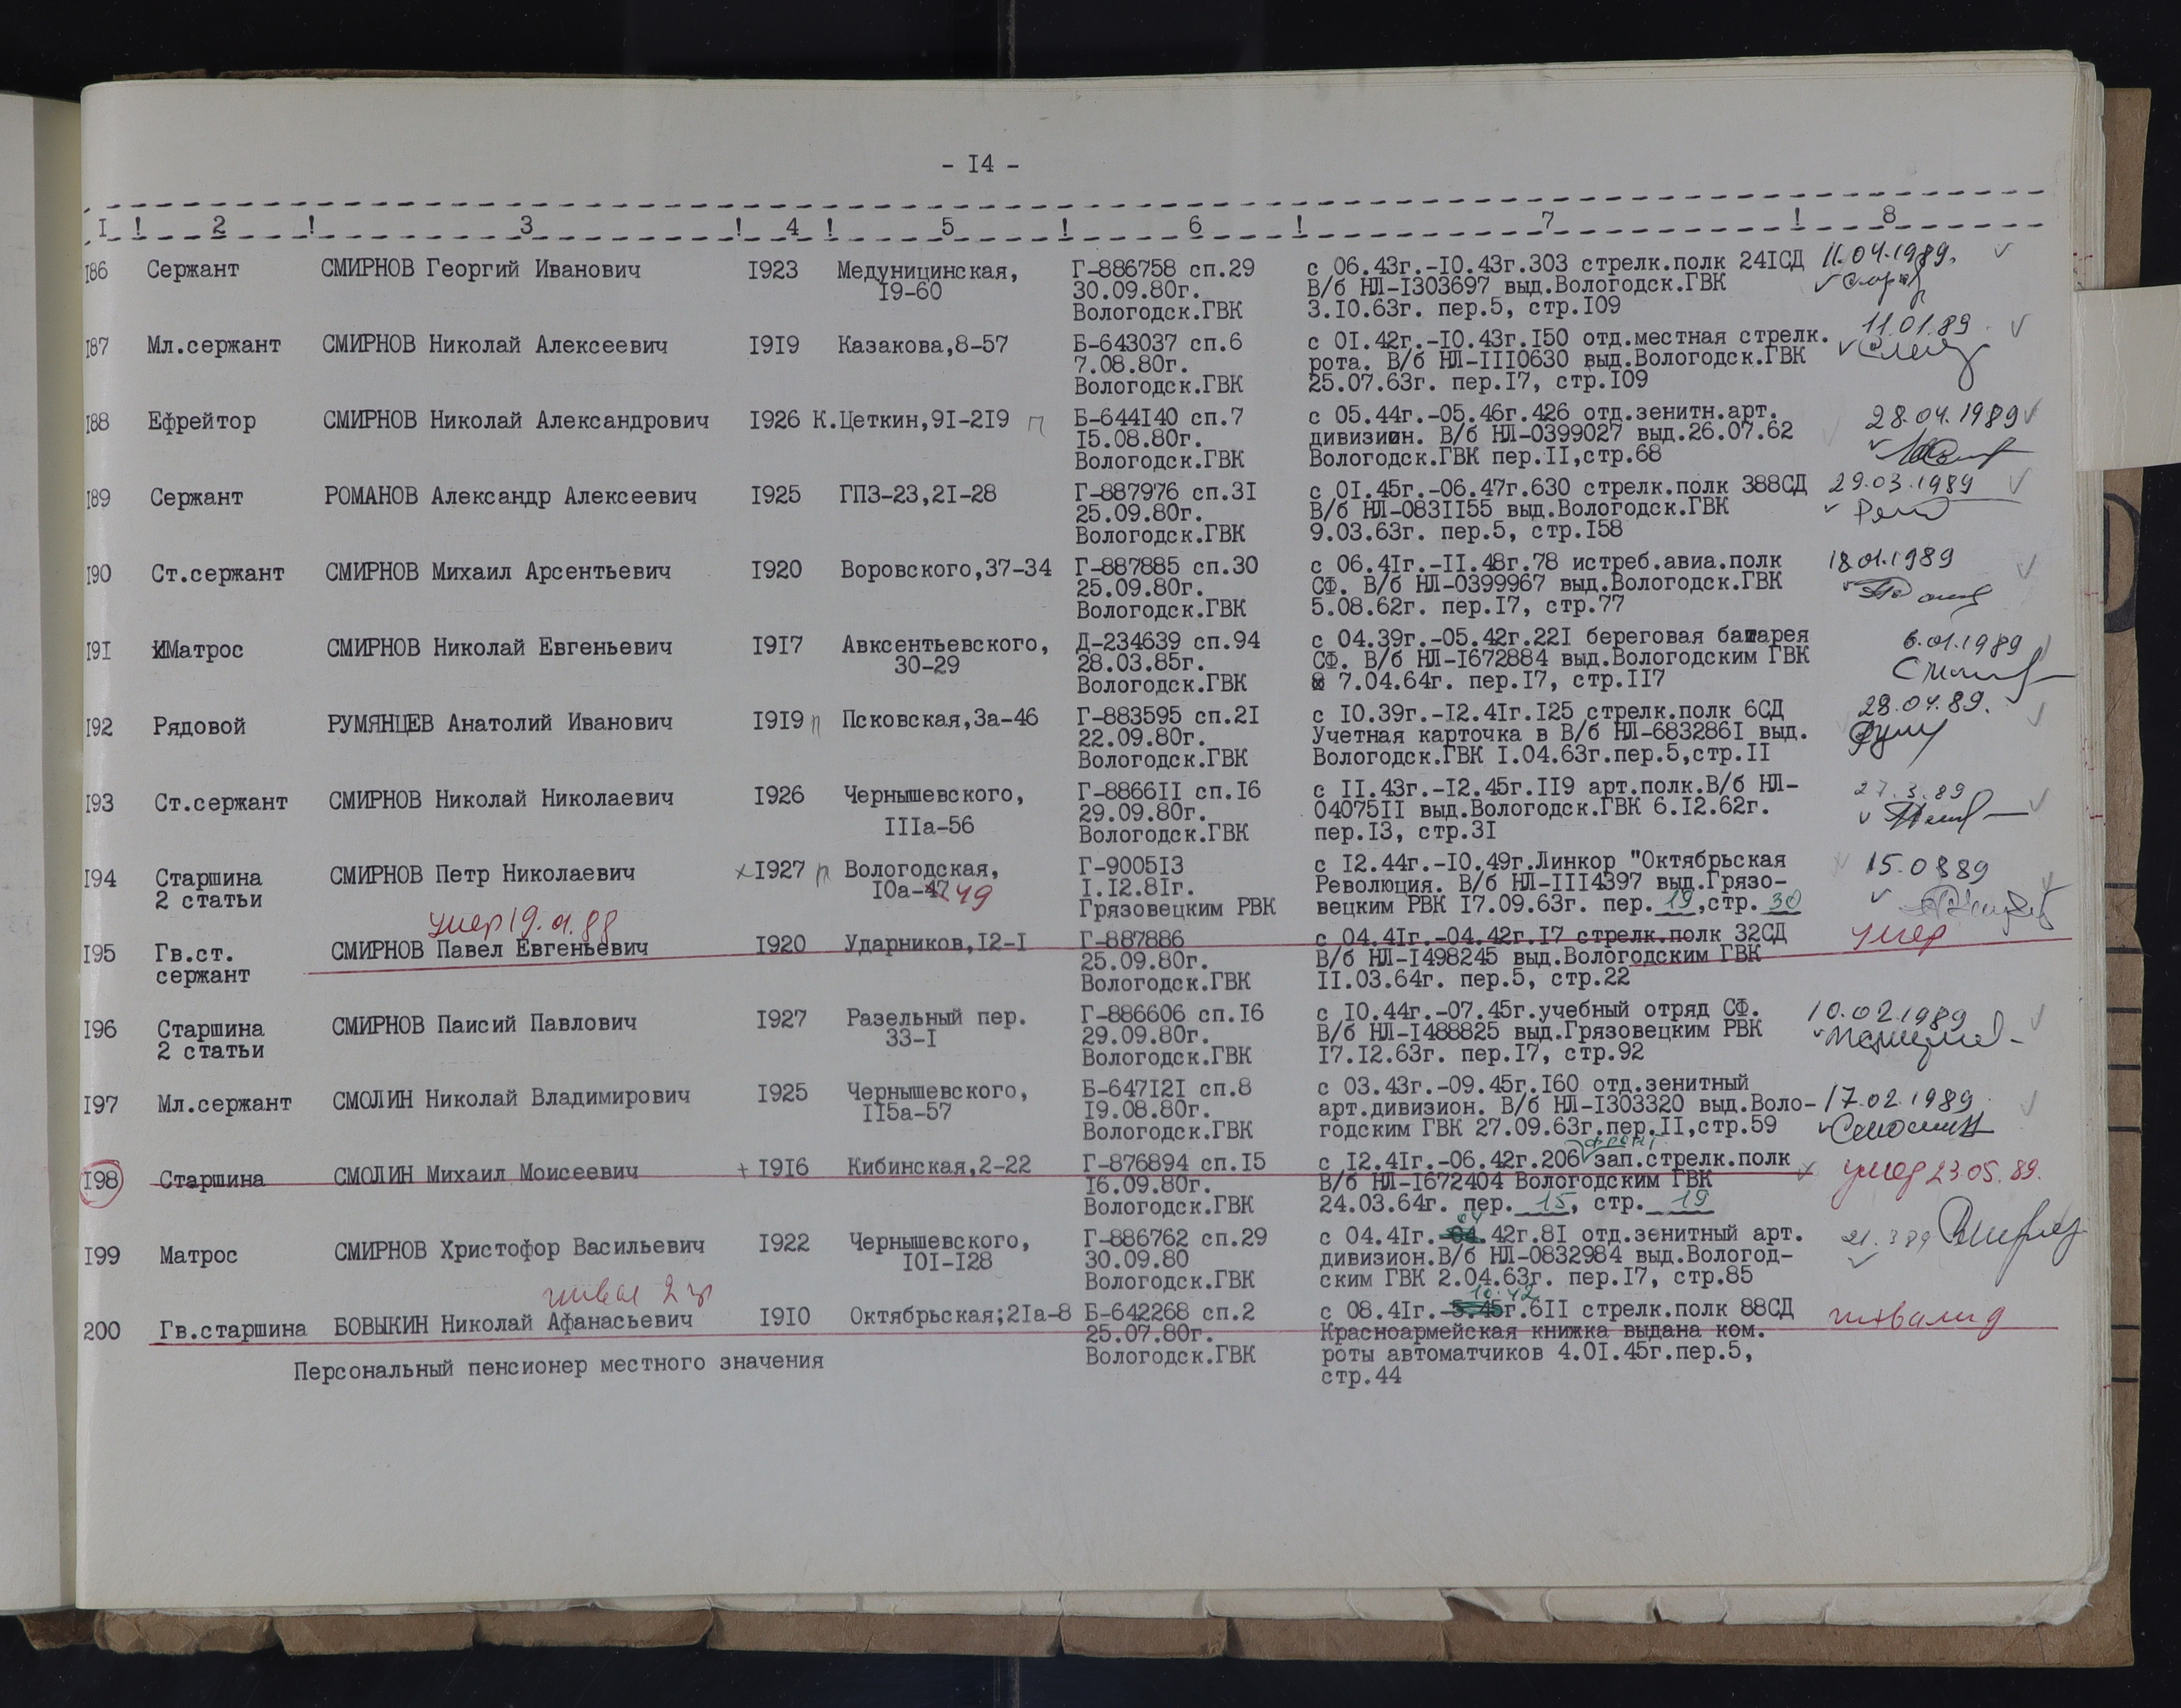 - I4 -
I ! 2 ! 3 ! 4 ! 5 ! 6 ! 7 ! 8
I86 Сержант СМИРНОВ Георгий Иванович I923 Медуницинская, Г-886758 сп.29 с 06.43г.-I0.43г.303 стрелк.полк 24IСД 11.04.1989.
I9-60 30.09.80г. В/б НЛ-I303697 выд.Вологодск.ГВК
Вологодск.ГВК 3.I0.63г. пер.5, стр.I09
I87 Мл.сержант СМИРНОВ Николай Алексеевич I9I9 Казакова,8-57 Б-643037 сп.6 с 0I.42г.-I0.43г.I50 отд.местная стрелк. 11.01.89
7.08.80г. рота. В/б НЛ-III0630 выд.Вологодск.ГВК
Вологодск.ГВК 25.07.63г. пер.I7, стр.I09
I88 Ефрейтор СМИРНОВ Николай Александрович I926 К.Цеткин,9I-2I9 п Б-644I40 сп.7 с 05.44г.-05.46г.426 отд.зенитн.арт. 28.04.1989
I5.08.80г. дивизион. В/б НЛ-0399027 выд.26.07.62
Вологодск.ГВК Вологодск.ГВК пер.II,стр.68
I89 Сержант РОМАНОВ Александр Алексеевич I925 ГПЗ-23,2I-28 Г-887976 сп.3I с 0I.45г.-06.47г.630 стрелк.полк 388СД 29.03.1989
25.09.80г. В/б НЛ-083II55 выд.Вологодск.ГВК
Вологодск.ГВК 9.03.63г. пер.5, стр.I58
I90 Ст.сержант СМИРНОВ Михаил Арсентьевич I920 Воровского,37-34 Г-887885 сп.30 с 06.4Iг.-II.48г.78 истреб.авиа.полк 18.01.1989
25.09.80г. СФ. В/б НЛ-0399967 выд.Вологодск.ГВК
Вологодск.ГВК 5.08.62г. пер.I7, стр.77
I9I Матрос СМИРНОВ Николай Евгеньевич I9I7 Авксентьевского, Д-234639 сп.94 с 04.39г.-05.42г.22I береговая батарея 6.01.1989
30-29 28.03.85г. СФ. В/б НЛ-I672884 выд.Вологодским ГВК
Вологодск.ГВК 7.04.64г. пер.I7, стр.II7
I92 Рядовой РУМЯНЦЕВ Анатолий Иванович I9I9 п Псковская,3а-46 Г-883595 сп.2I с I0.39г.-I2.4Iг.I25 стрелк.полк 6СД 28.04.89.
22.09.80г. Учетная карточка в В/б НЛ-683286I выд.
Вологодск.ГВК Вологодск.ГВК I.04.63г.пер.5,стр.II
I93 Ст.сержант СМИРНОВ Николай Николаевич I926 Чернышевского, Г-8866II сп.I6 с II.43г.-I2.45г.II9 арт.полк.В/б НЛ- 27.3.89
IIIа-56 29.09.80г. 04075II выд.Вологодск.ГВК 6.I2.62г.
Вологодск.ГВК пер.I3, стр.3I
I94 Старшина СМИРНОВ Петр Николаевич I927 п Вологодская, Г-9005I3 с I2.44г.-I0.49г.Линкор "Октябрьская 15.0389
2 статьи I0а-47 49 I.I2.8Iг. Революция. В/б НЛ-III4397 выд.Грязо-
Грязовецким РВК вецким РВК I7.09.63г. пер. 19,стр. 30
умер 19.01.88
I95 Гв.ст. СМИРНОВ Павел Евгеньевич I920 Ударников,I2-I Г-887886 с 04.4Iг.-04.42г.I7 стрелк.полк 32СД умер
сержант 25.09.80г. В/б НЛ-I498245 выд.Вологодским ГВК
Вологодск.ГВК II.03.64г. пер.5, стр.22
I96 Старшина СМИРНОВ Паисий Павлович I927 Разельный пер. Г-886606 сп.I6 с I0.44г.-07.45г.учебный отряд СФ. 10.02.1989
2 статьи 33-I 29.09.80г. В/б НЛ-I488825 выд.Грязовецким РВК
Вологодск.ГВК I7.I2.63г. пер.I7, стр.92
I97 Мл.сержант СМОЛИН Николай Владимирович I925 Чернышевского, Б-647I2I сп.8 с 03.43г.-09.45г.I60 отд.зенитный
II5а-57 I9.08.80г. арт.дивизион. В/б НЛ-I303320 выд.Воло- 17.02.1989
Вологодск.ГВК годским ГВК 27.09.63г.пер.II,стр.59
I98 Старшина СМОЛИН Михаил Моисеевич + I9I6 Кибинская,2-22 Г-876894 сп.I5 с I2.4Iг.-06.42г.206 зап.стрелк.полк умер 23.05.89.
I6.09.80г. В/б НЛ-I672404 Вологодским ГВК
Вологодск.ГВК 24.03.64г. пер. 15, стр. 19
I99 Матрос СМИРНОВ Христофор Васильевич I922 Чернышевского, Г-886762 сп.29 с 04.4Iг.-04.42г.8I отд.зенитный арт. 21.389
I0I-I28 30.09.80 дивизион.В/б НЛ-0832984 выд.Вологод-
Вологодск.ГВК ским ГВК 2.04.63г. пер.I7, стр.85
10.42
200 Гв.старшина БОВЫКИН Николай Афанасьевич I9I0 Октябрьская;2Iа-8 Б-642268 сп.2 с 08.4Iг.-5.45г.6II стрелк.полк 88СД инвалид
25.07.80г. Красноармейская книжка выдана ком.
Персональный пенсионер местного значения Вологодск.ГВК роты автоматчиков 4.0I.45г.пер.5,
стр.44